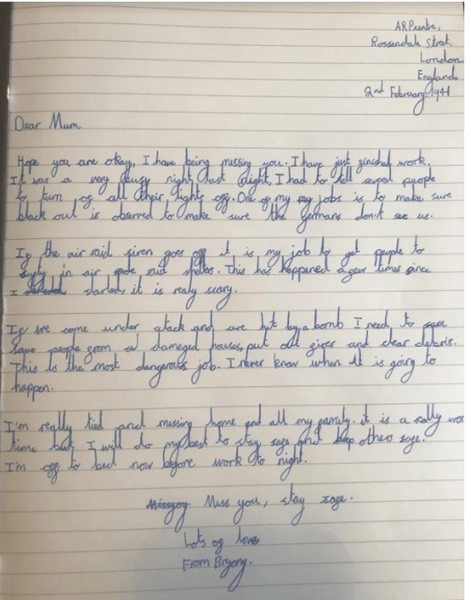 ARP centre,
Rossendale Street.
London
England
2nd February 1941
Dear Mum,
Hope you are okay, I have being missing you. I have just finished work.
It was a very busy night last night, I had to tell people
to turn of all their lights off. One of my jobs is to make sure
black out is observed to make sure the Germans don't see us.
If the air raid siren goes off it is my job to get people to
safty in air raid. This has happened a few times since
I started it is realy scary.
If we come under atack and are hit by a bomb I need to
save people from damaged houses, put out fires and clear debris.
This is the most dangerous job. I never know when it is going to
happen.
I'm really tied and missing home and all my family. it is a
time but I will do my best to stay safe and keep others safe.
I'm off to bed now before work to night.
Miss you, stay safe.
Lots of love
From Bryony.